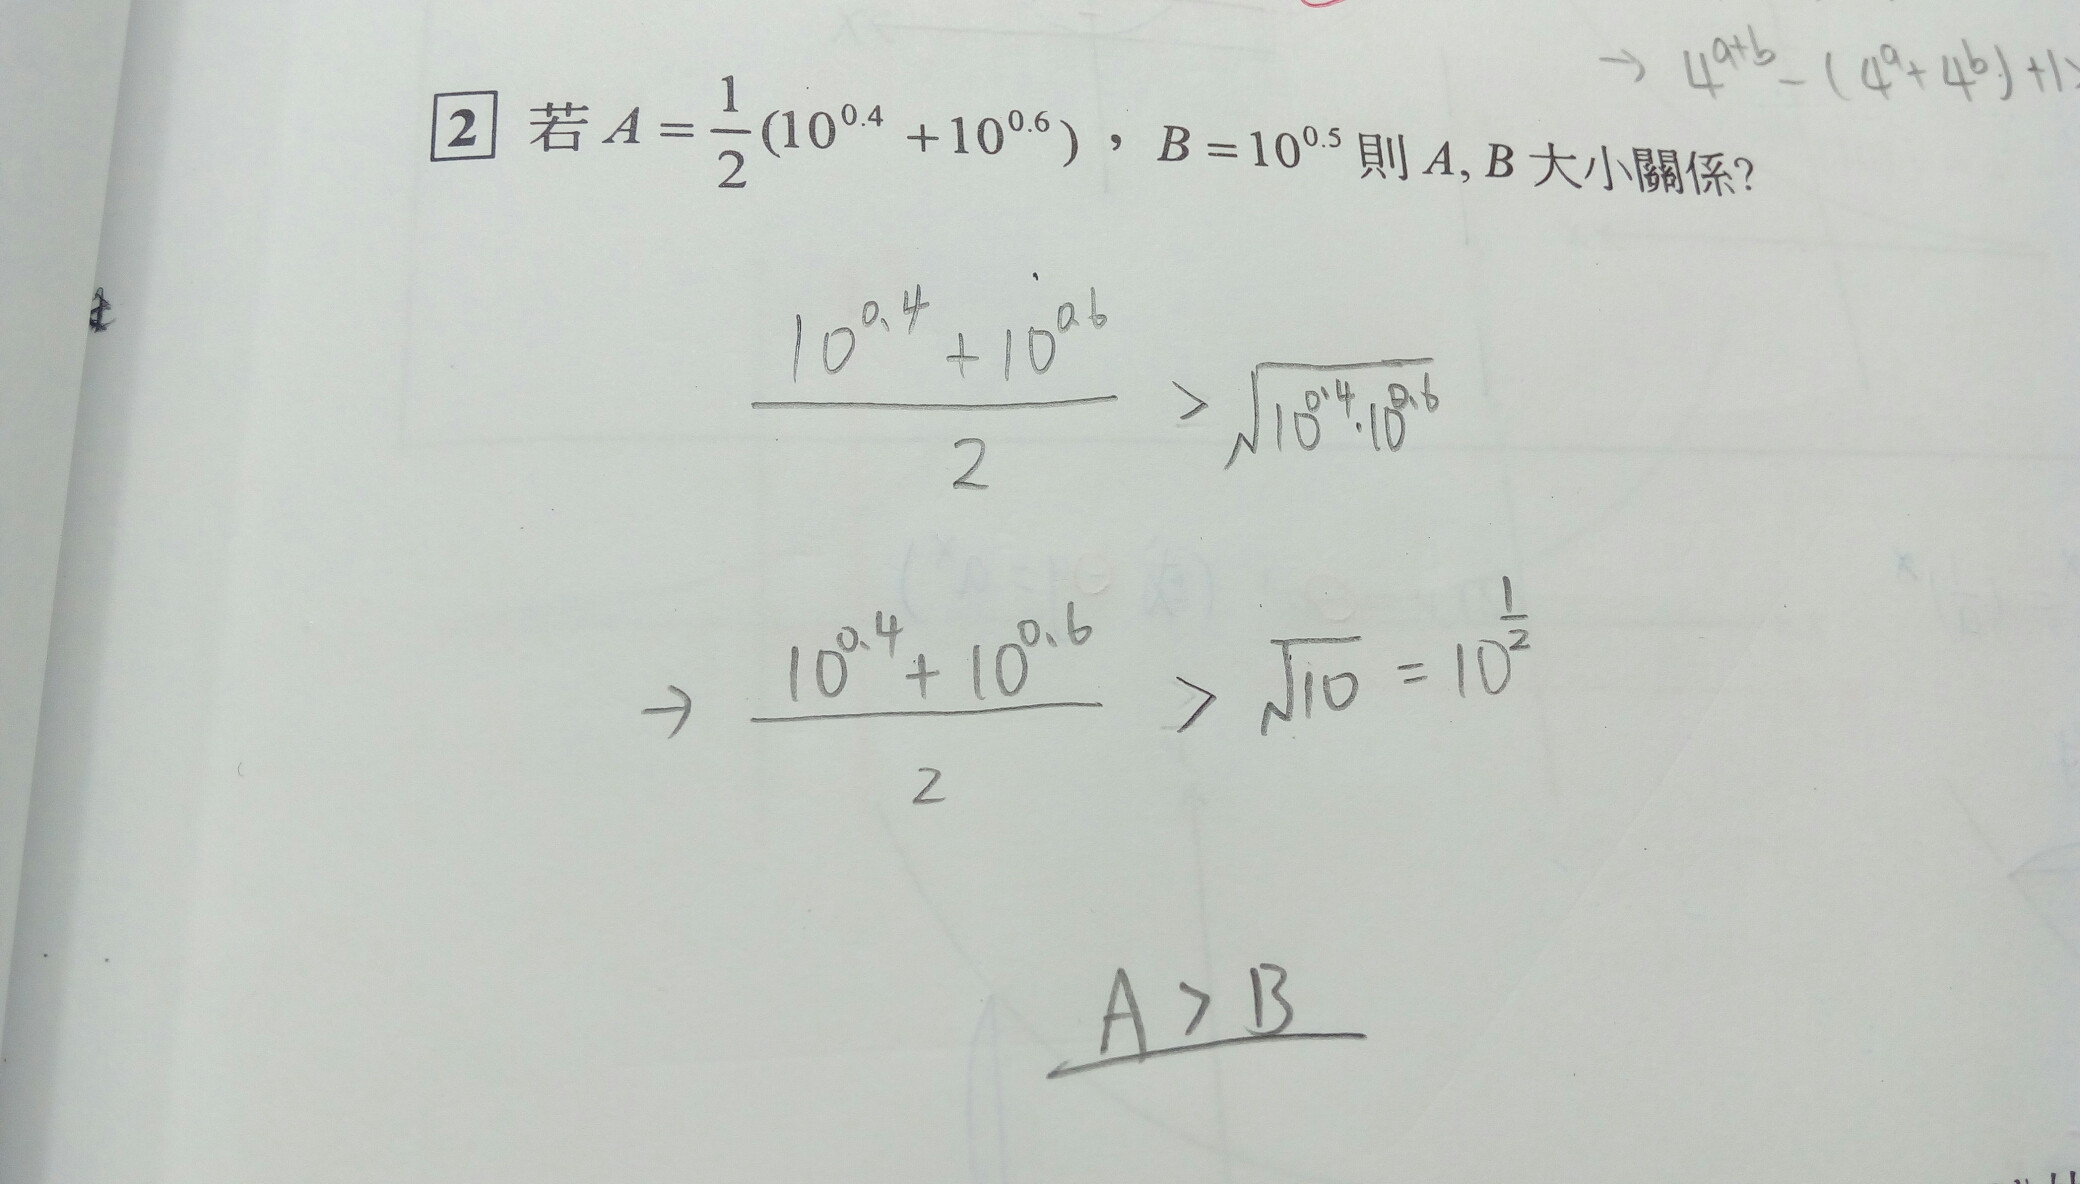 → 4^{a+b} - (4^a + 4^b) + 1
2 若 A = \frac{1}{2}(10^{0.4} + 10^{0.6})，B = 10^{0.5} 則 A, B 大小關係?
\frac{10^{0.4} + 10^{0.6}}{2} > \sqrt{10^{0.4} \cdot 10^{0.6}}
→ \frac{10^{0.4} + 10^{0.6}}{2} > \sqrt{10} = 10^{\frac{1}{2}}
A > B